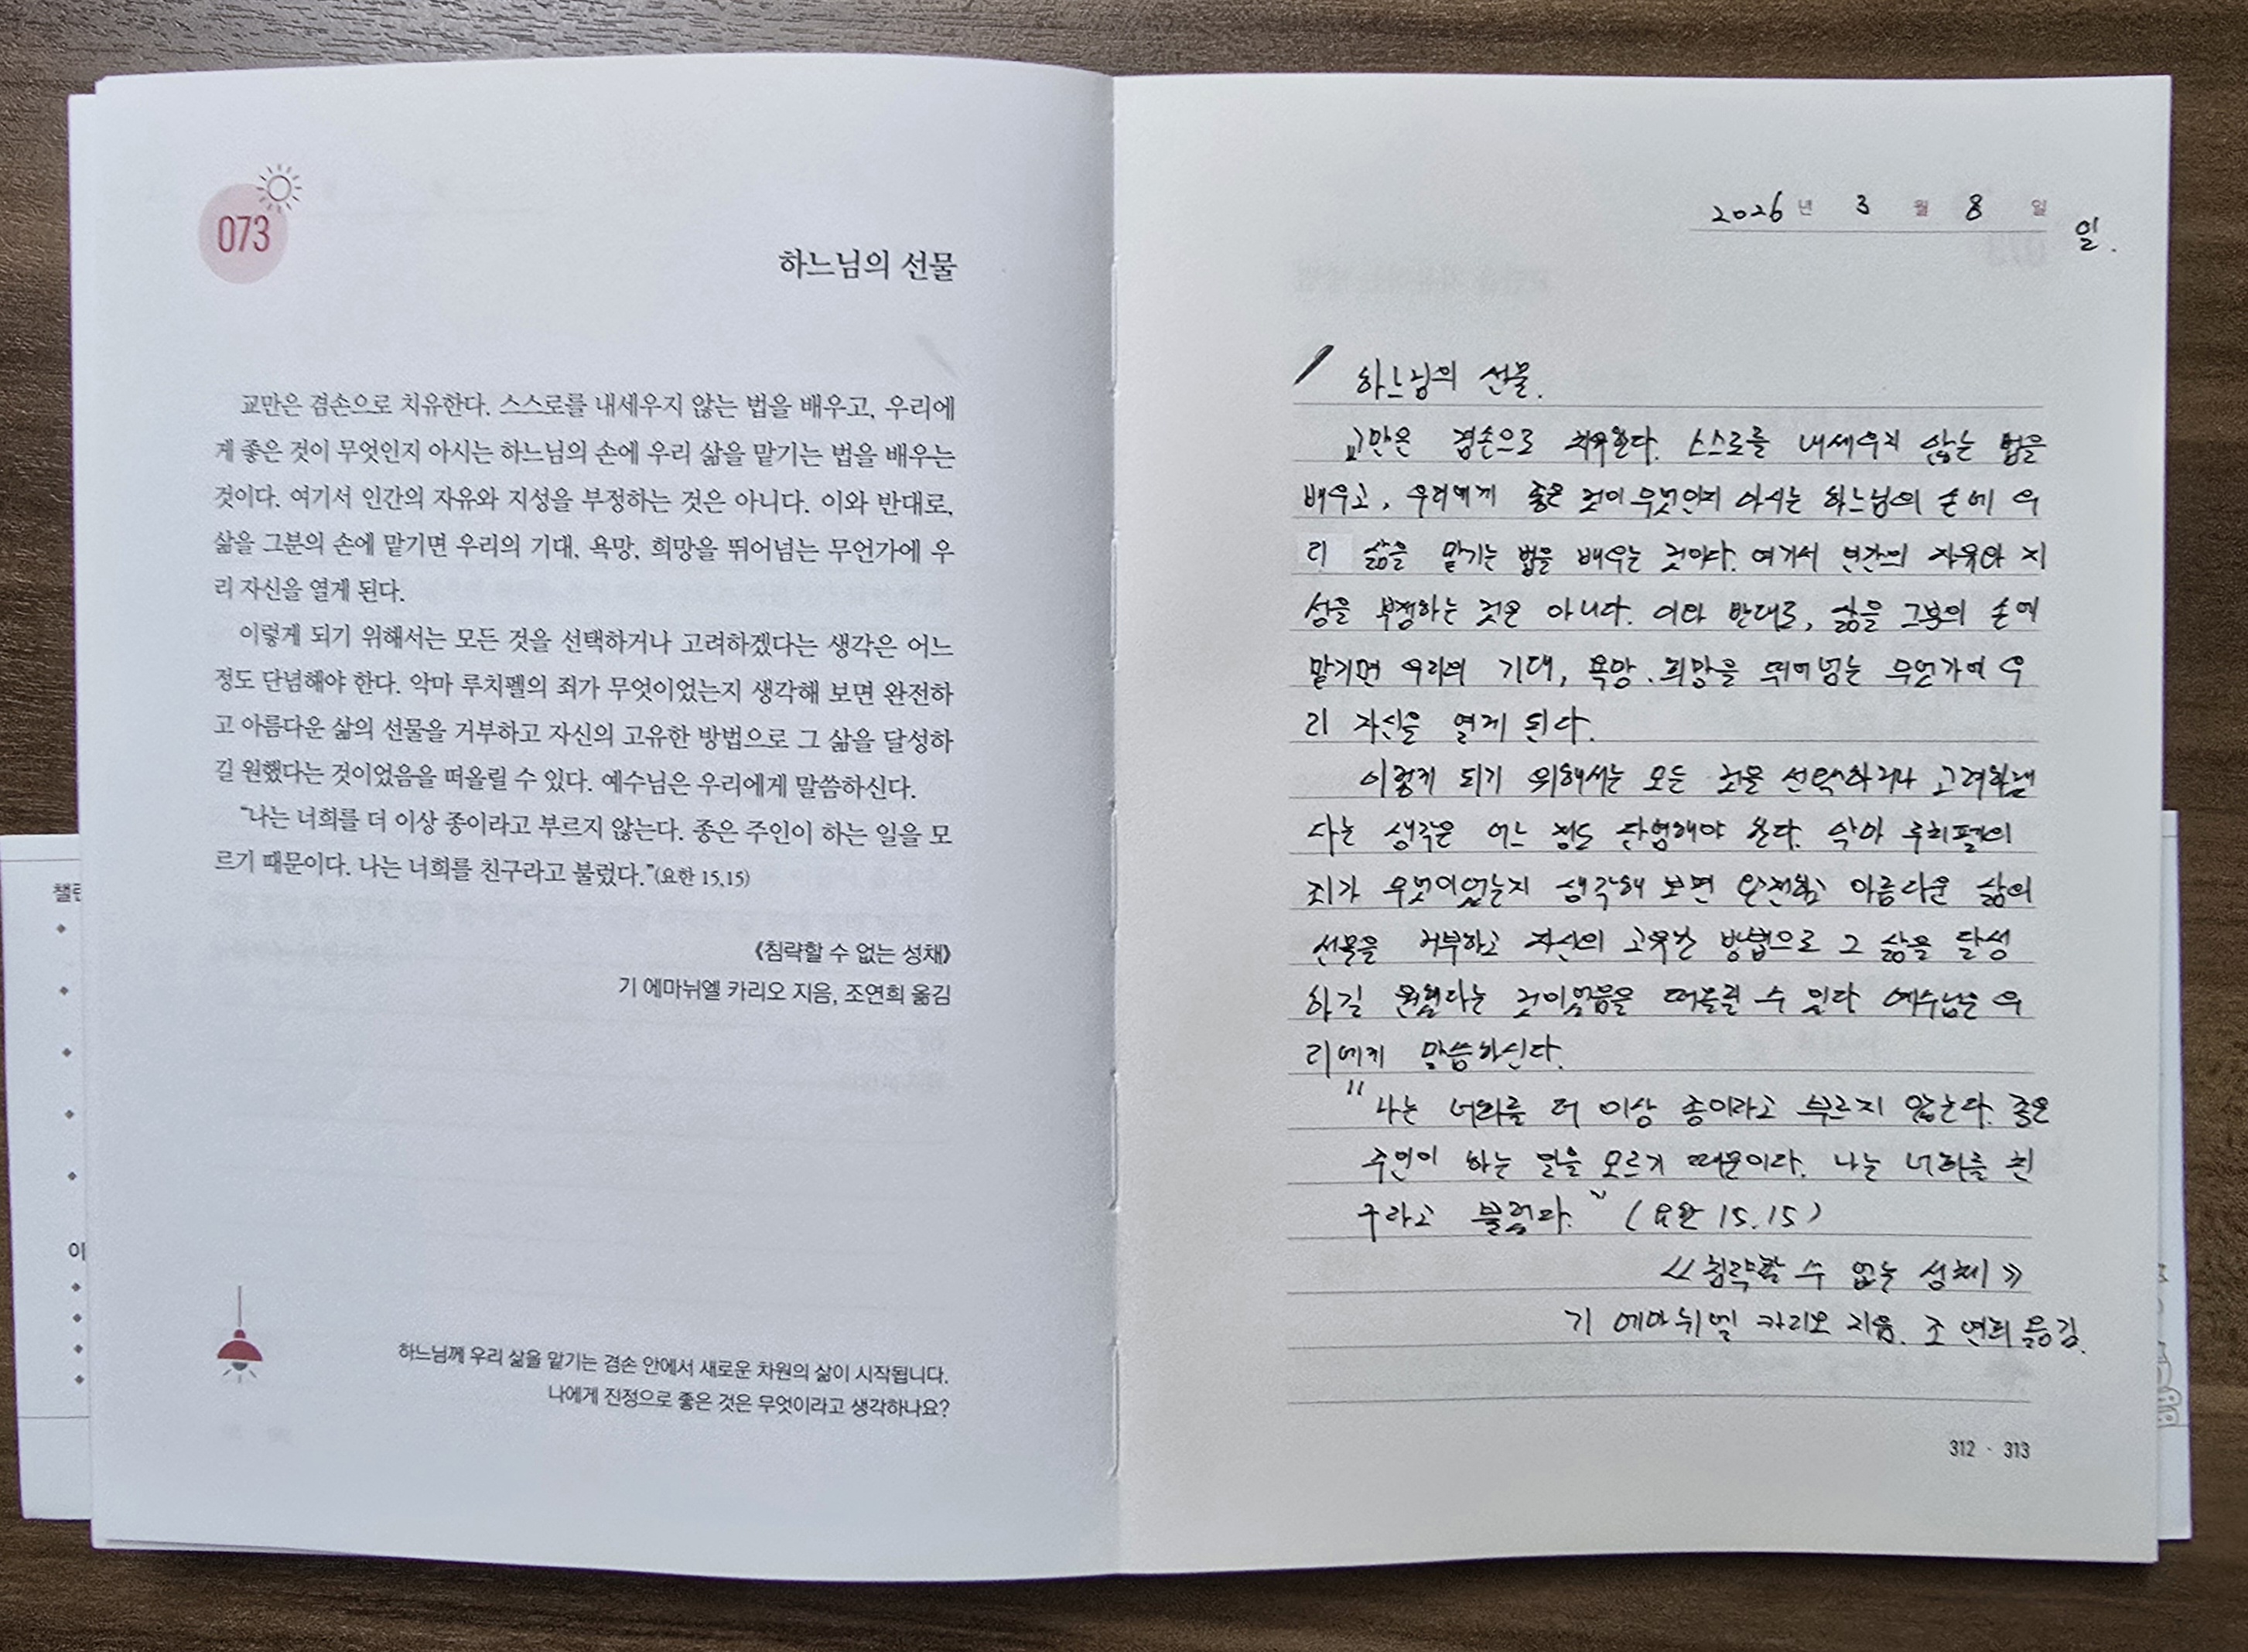 073
하느님의 선물
교만은 겸손으로 치유한다. 스스로를 내세우지 않는 법을 배우고, 우리에
게 좋은 것이 무엇인지 아시는 하느님의 손에 우리 삶을 맡기는 법을 배우는
것이다. 여기서 인간의 자유와 지성을 부정하는 것은 아니다. 이와 반대로,
삶을 그분의 손에 맡기면 우리의 기대, 욕망, 희망을 뛰어넘는 무언가에 우
리 자신을 열게 된다.
이렇게 되기 위해서는 모든 것을 선택하거나 고려하겠다는 생각은 어느
정도 단념해야 한다. 악마 루치펠의 죄가 무엇이었는지 생각해 보면 완전하
고 아름다운 삶의 선물을 거부하고 자신의 고유한 방법으로 그 삶을 달성하
길 원했다는 것이었음을 떠올릴 수 있다. 예수님은 우리에게 말씀하신다.
“나는 너희를 더 이상 종이라고 부르지 않는다. 종은 주인이 하는 일을 모
르기 때문이다. 나는 너희를 친구라고 불렀다.”(요한 15,15)
《침략할 수 없는 성채》
기 에마뉘엘 카리오 지음, 조연희 옮김
하느님께 우리 삶을 맡기는 겸손 안에서 새로운 차원의 삶이 시작됩니다.
나에게 진정으로 좋은 것은 무엇이라고 생각하나요?
챌린
이
2026년 3월 8일
일.
하느님의 선물.
교만은 겸손으로 치유한다. 스스로를 내세우지 않는 법을
배우고, 우리에게 좋은 것이 무엇인지 아시는 하느님의 손에 우
리 삶을 맡기는 법을 배우는 것이다. 여기서 인간의 자유와 지
성을 부정하는 것은 아니다. 이와 반대로, 삶을 그분의 손에
맡기면 우리의 기대, 욕망. 희망을 뛰어넘는 무언가에 우
리 자신을 열게 된다.
이렇게 되기 위해서는 모든 것을 선택하거나 고려하겠
다는 생각은 어느 정도 단념해야 한다. 악마 루치펠의
죄가 무엇이었는지 생각해 보면 아름다운 삶의
선물을 거부하고 자신의 고유한 방법으로 그 삶을 달성
하길 원했다는 것이었음을 떠올릴 수 있다 예수님은 우
리에게 말씀하신다.
“나는 너희를 더 이상 종이라고 부르지 않는다. 종은
주인이 하는 일을 모르기 때문이다. 나는 너희를 친
구라고 불렀다.” (요한 15.15)
《침략할 수 없는 성채》
기 에마뉘엘 카리오 지음. 조 연희 옮김.
312 · 313